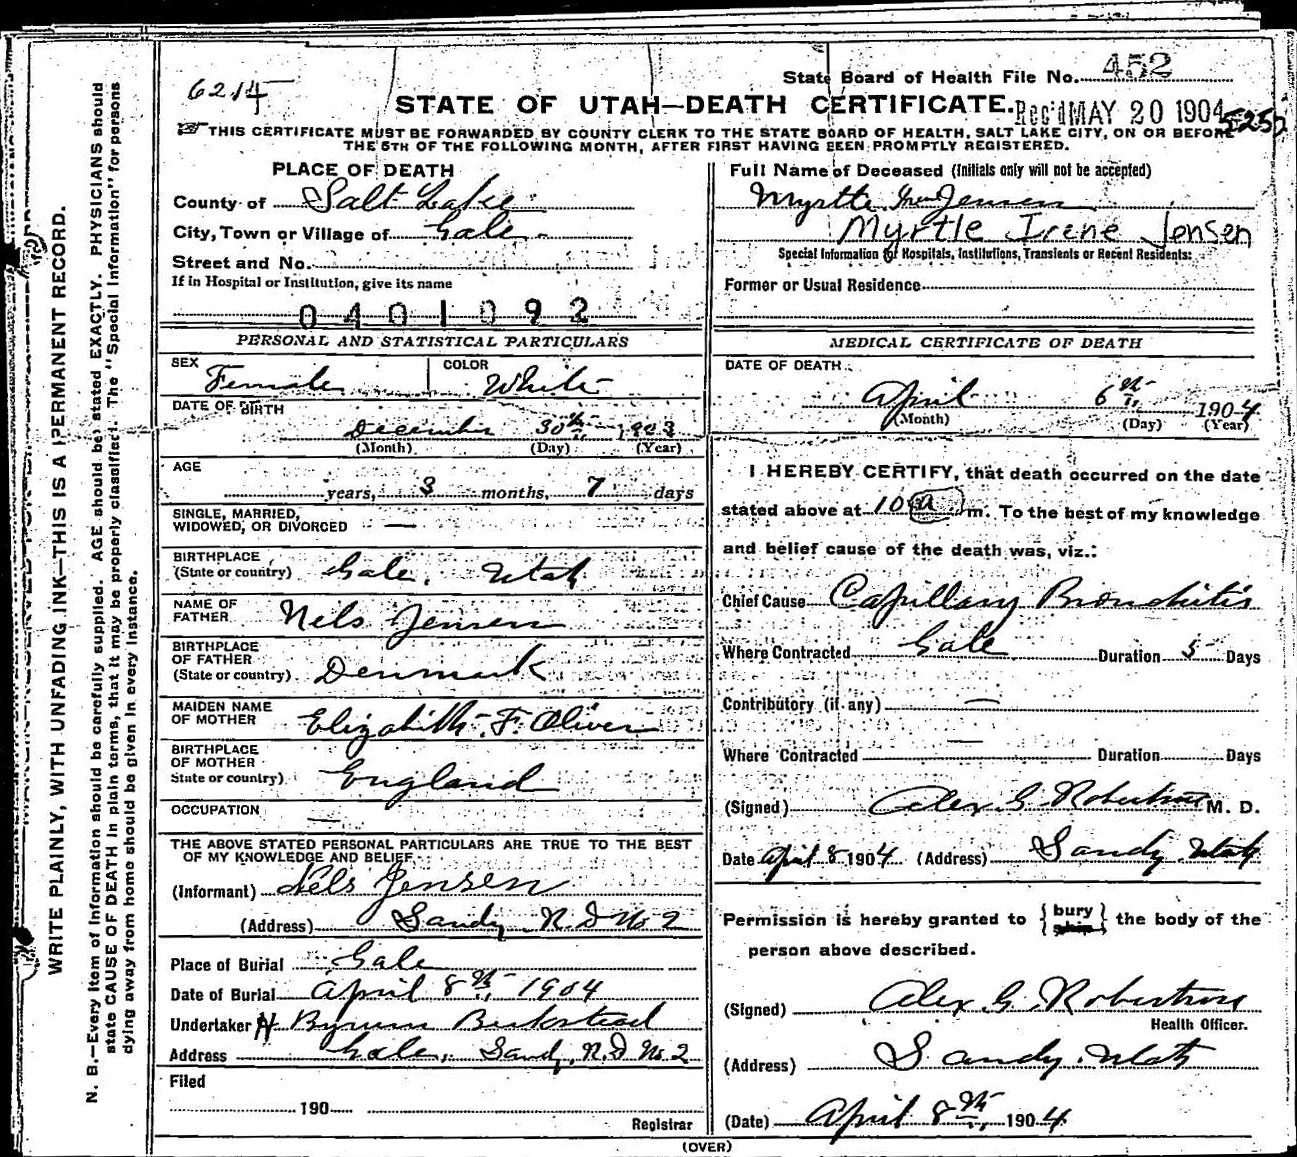 6214
State Board of Health File No. 452
STATE OF UTAH—DEATH CERTIFICATE.
Rec'd MAY 20 1904
THIS CERTIFICATE MUST BE FORWARDED BY COUNTY CLERK TO THE STATE BOARD OF HEALTH, SALT LAKE CITY, ON OR BEFORE
THE 5TH OF THE FOLLOWING MONTH, AFTER FIRST HAVING BEEN PROMPTLY REGISTERED.
WRITE PLAINLY, WITH UNFADING INK—THIS IS A PERMANENT RECORD.
N. B.—Every item of information should be carefully supplied. AGE should be stated EXACTLY. PHYSICIANS should
state CAUSE OF DEATH in plain terms, that it may be properly classified. The "Special Information" for persons
dying away from home should be given in every instance.
PLACE OF DEATH
County of Salt Lake
City, Town or Village of Gale
Street and No.
If in Hospital or Institution, give its name
0401092
PERSONAL AND STATISTICAL PARTICULARS
SEX Female COLOR White
DATE OF BIRTH
December 30th 1903
(Month) (Day) (Year)
AGE
years, 3 months, 7 days
SINGLE, MARRIED,
WIDOWED, OR DIVORCED —
BIRTHPLACE
(State or country) Gale, Utah
NAME OF
FATHER Nels Jensen
BIRTHPLACE
OF FATHER
(State or country) Denmark
MAIDEN NAME
OF MOTHER Elizabeth F. Oliver
BIRTHPLACE
OF MOTHER
State or country) England
OCCUPATION —
THE ABOVE STATED PERSONAL PARTICULARS ARE TRUE TO THE BEST
OF MY KNOWLEDGE AND BELIEF
(Informant) Nels Jensen
(Address) Sandy R. D No 2
Place of Burial Gale
Date of Burial April 8th 1904
Undertaker H Byrum Beckstead
Address Gale, Sandy, R. D No. 2
Filed
190
Registrar
Full Name of Deceased (Initials only will not be accepted)
Myrtle Irene Jensen
Myrtle Irene Jensen
Special Information for Hospitals, Institutions, Transients or Recent Residents:
Former or Usual Residence
MEDICAL CERTIFICATE OF DEATH
DATE OF DEATH
April 6th 1904
(Month) (Day) (Year)
I HEREBY CERTIFY, that death occurred on the date
stated above at 10 a m. To the best of my knowledge
and belief cause of the death was, viz.:
Chief Cause Capillary Bronchitis
Where Contracted Gale Duration 5 Days
Contributory (if any) —
Where Contracted — Duration Days
(Signed) Alex G. Robertson M. D.
Date April 8 1904 (Address) Sandy Utah
Permission is hereby granted to { bury ship } the body of the
person above described.
(Signed) Alex G. Robertson
Health Officer.
(Address) Sandy, Utah
(Date) April 8th, 1904
(OVER)